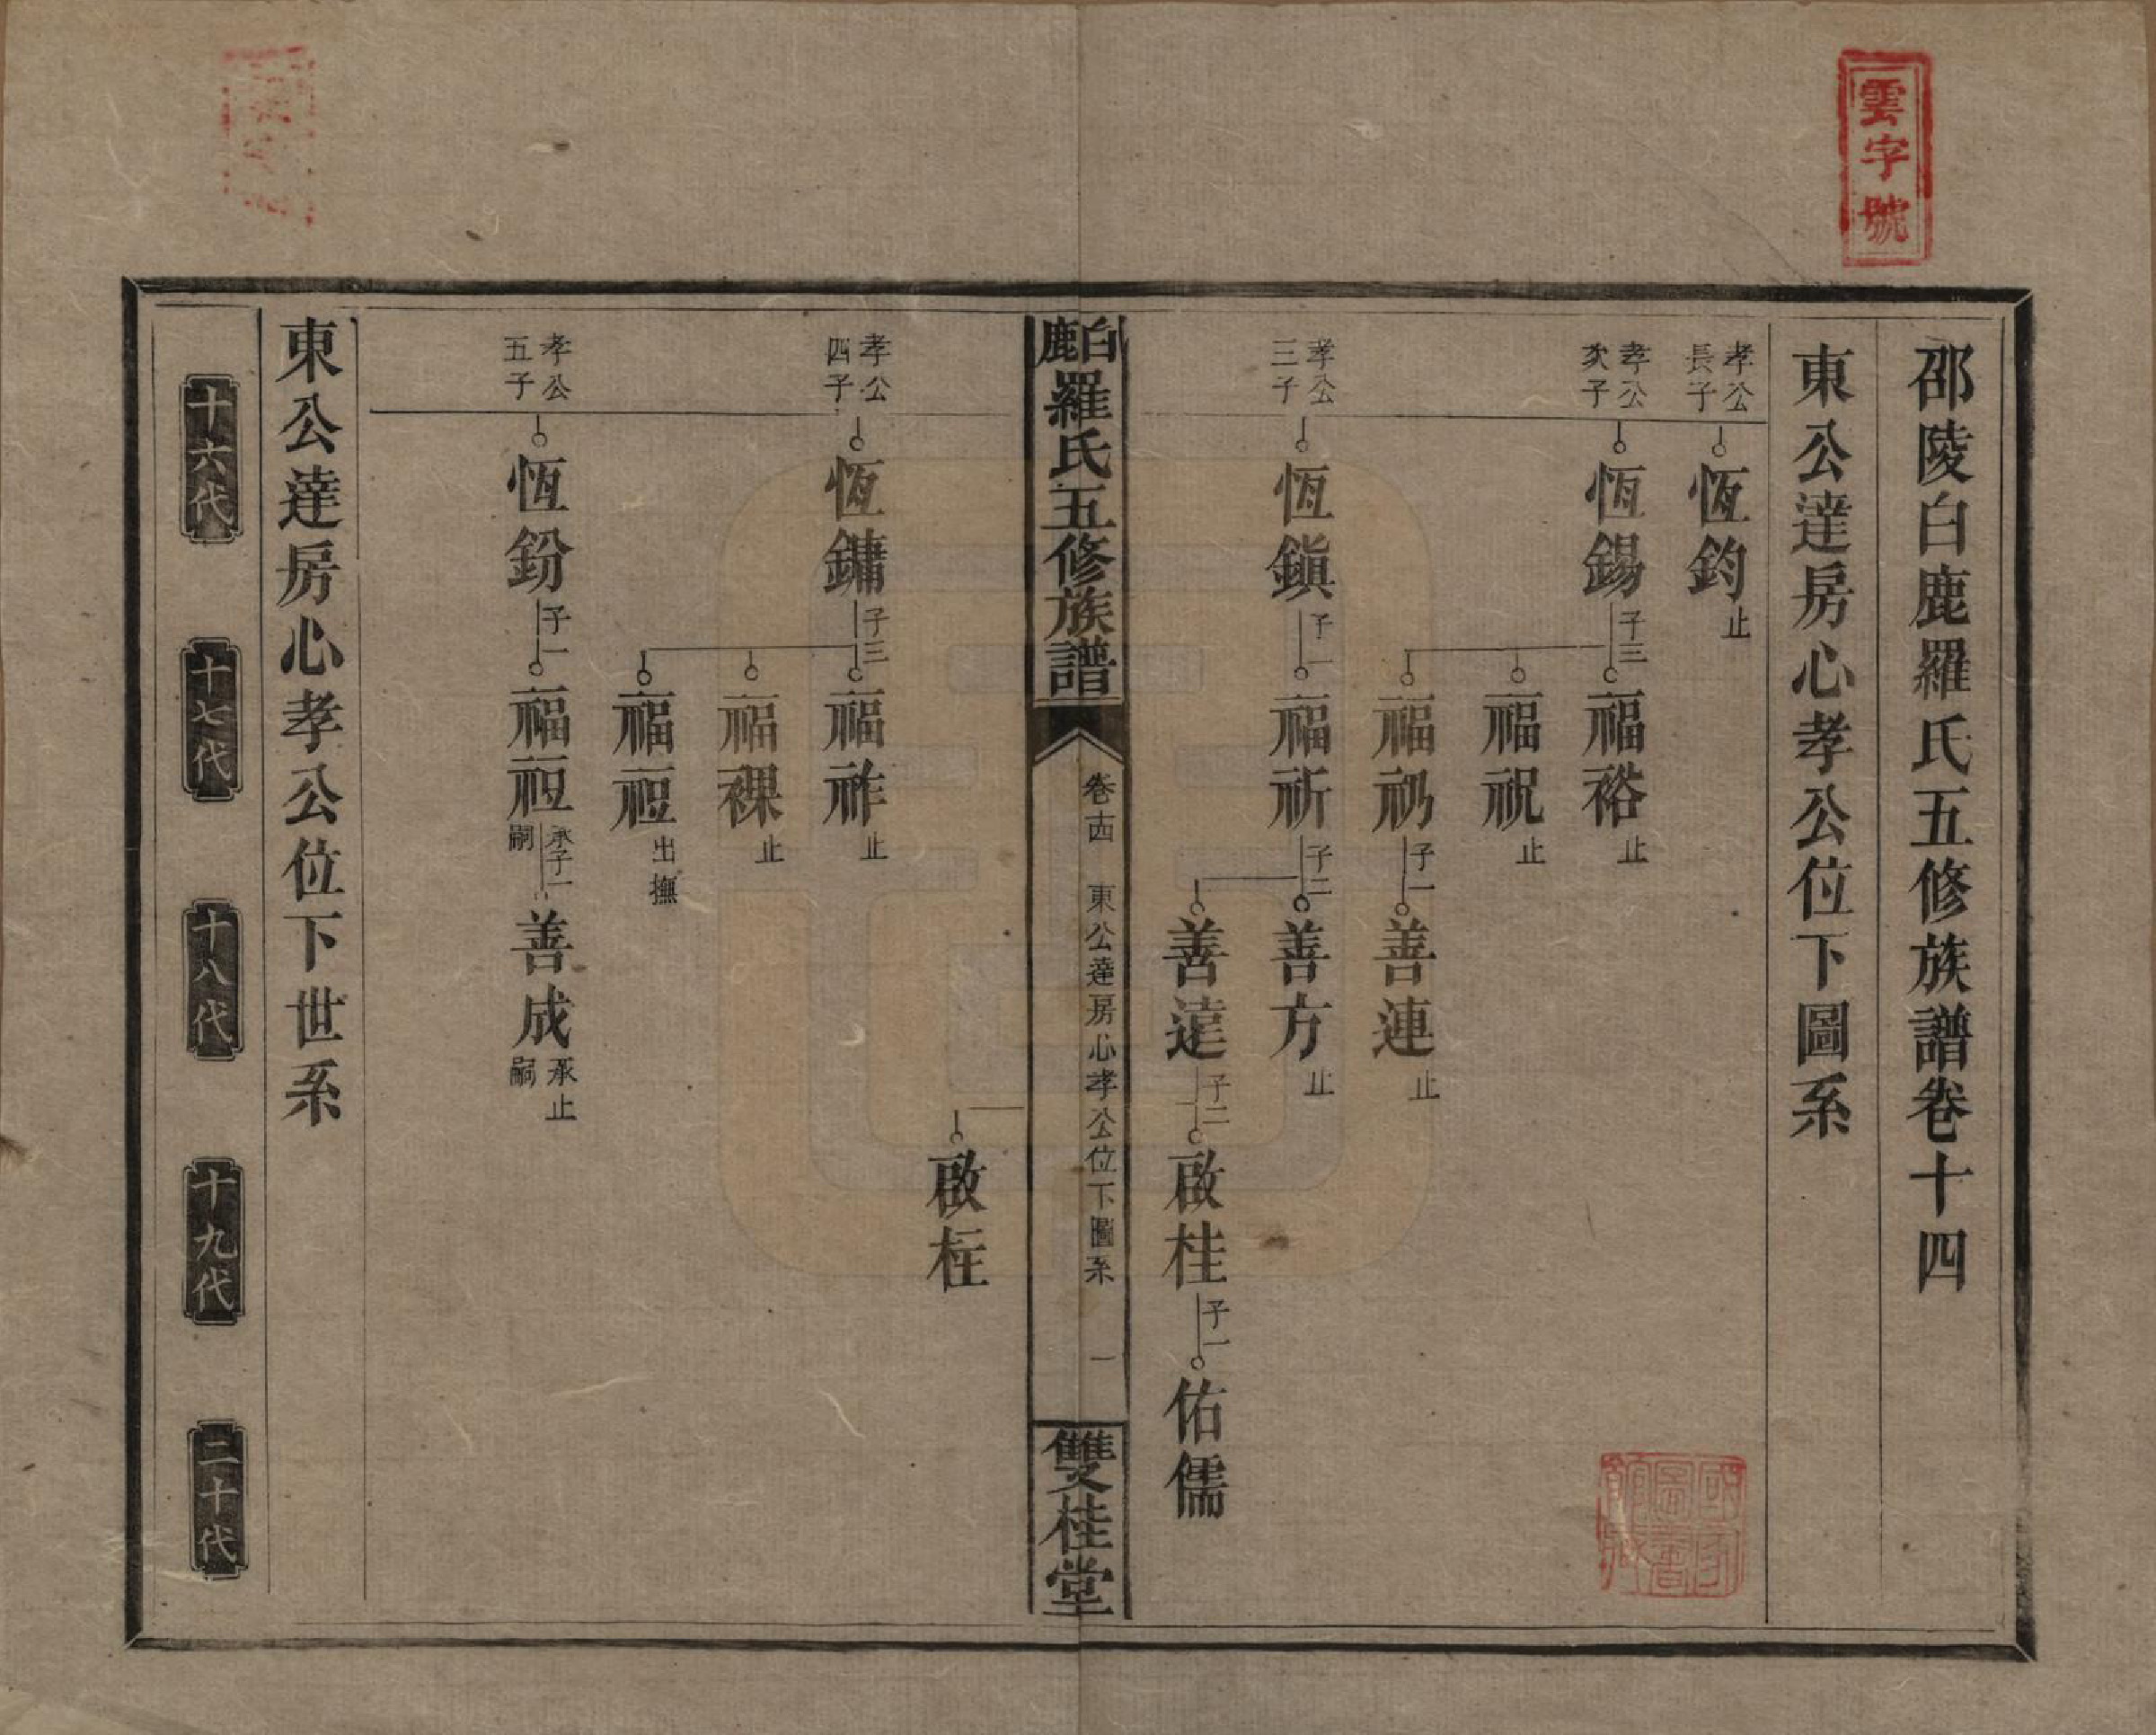 雲字號
邵陵白鹿羅氏五修族譜卷十四
東公達房心孝公位下圖系
孝公長子
恆鈞止
孝公次子
恆錫子三
福裕止
福祝止
福礽子一
善連止
孝公三子
恆鎭子一
福祈子二
善方止
善達子二
啟桂子一
佑儒
白鹿羅氏五修族譜
卷十四 東公達房心孝公位下圖系 一
雙桂堂
啟枉
孝公四子
恆鏞子三
福祚止
福祼止
福䄈出撫
孝公五子
恆鈖子一
福䄈承嗣子一
善成承嗣止
東公達房心孝公位下世系
十六代
十七代
十八代
十九代
二十代
國家圖書館藏